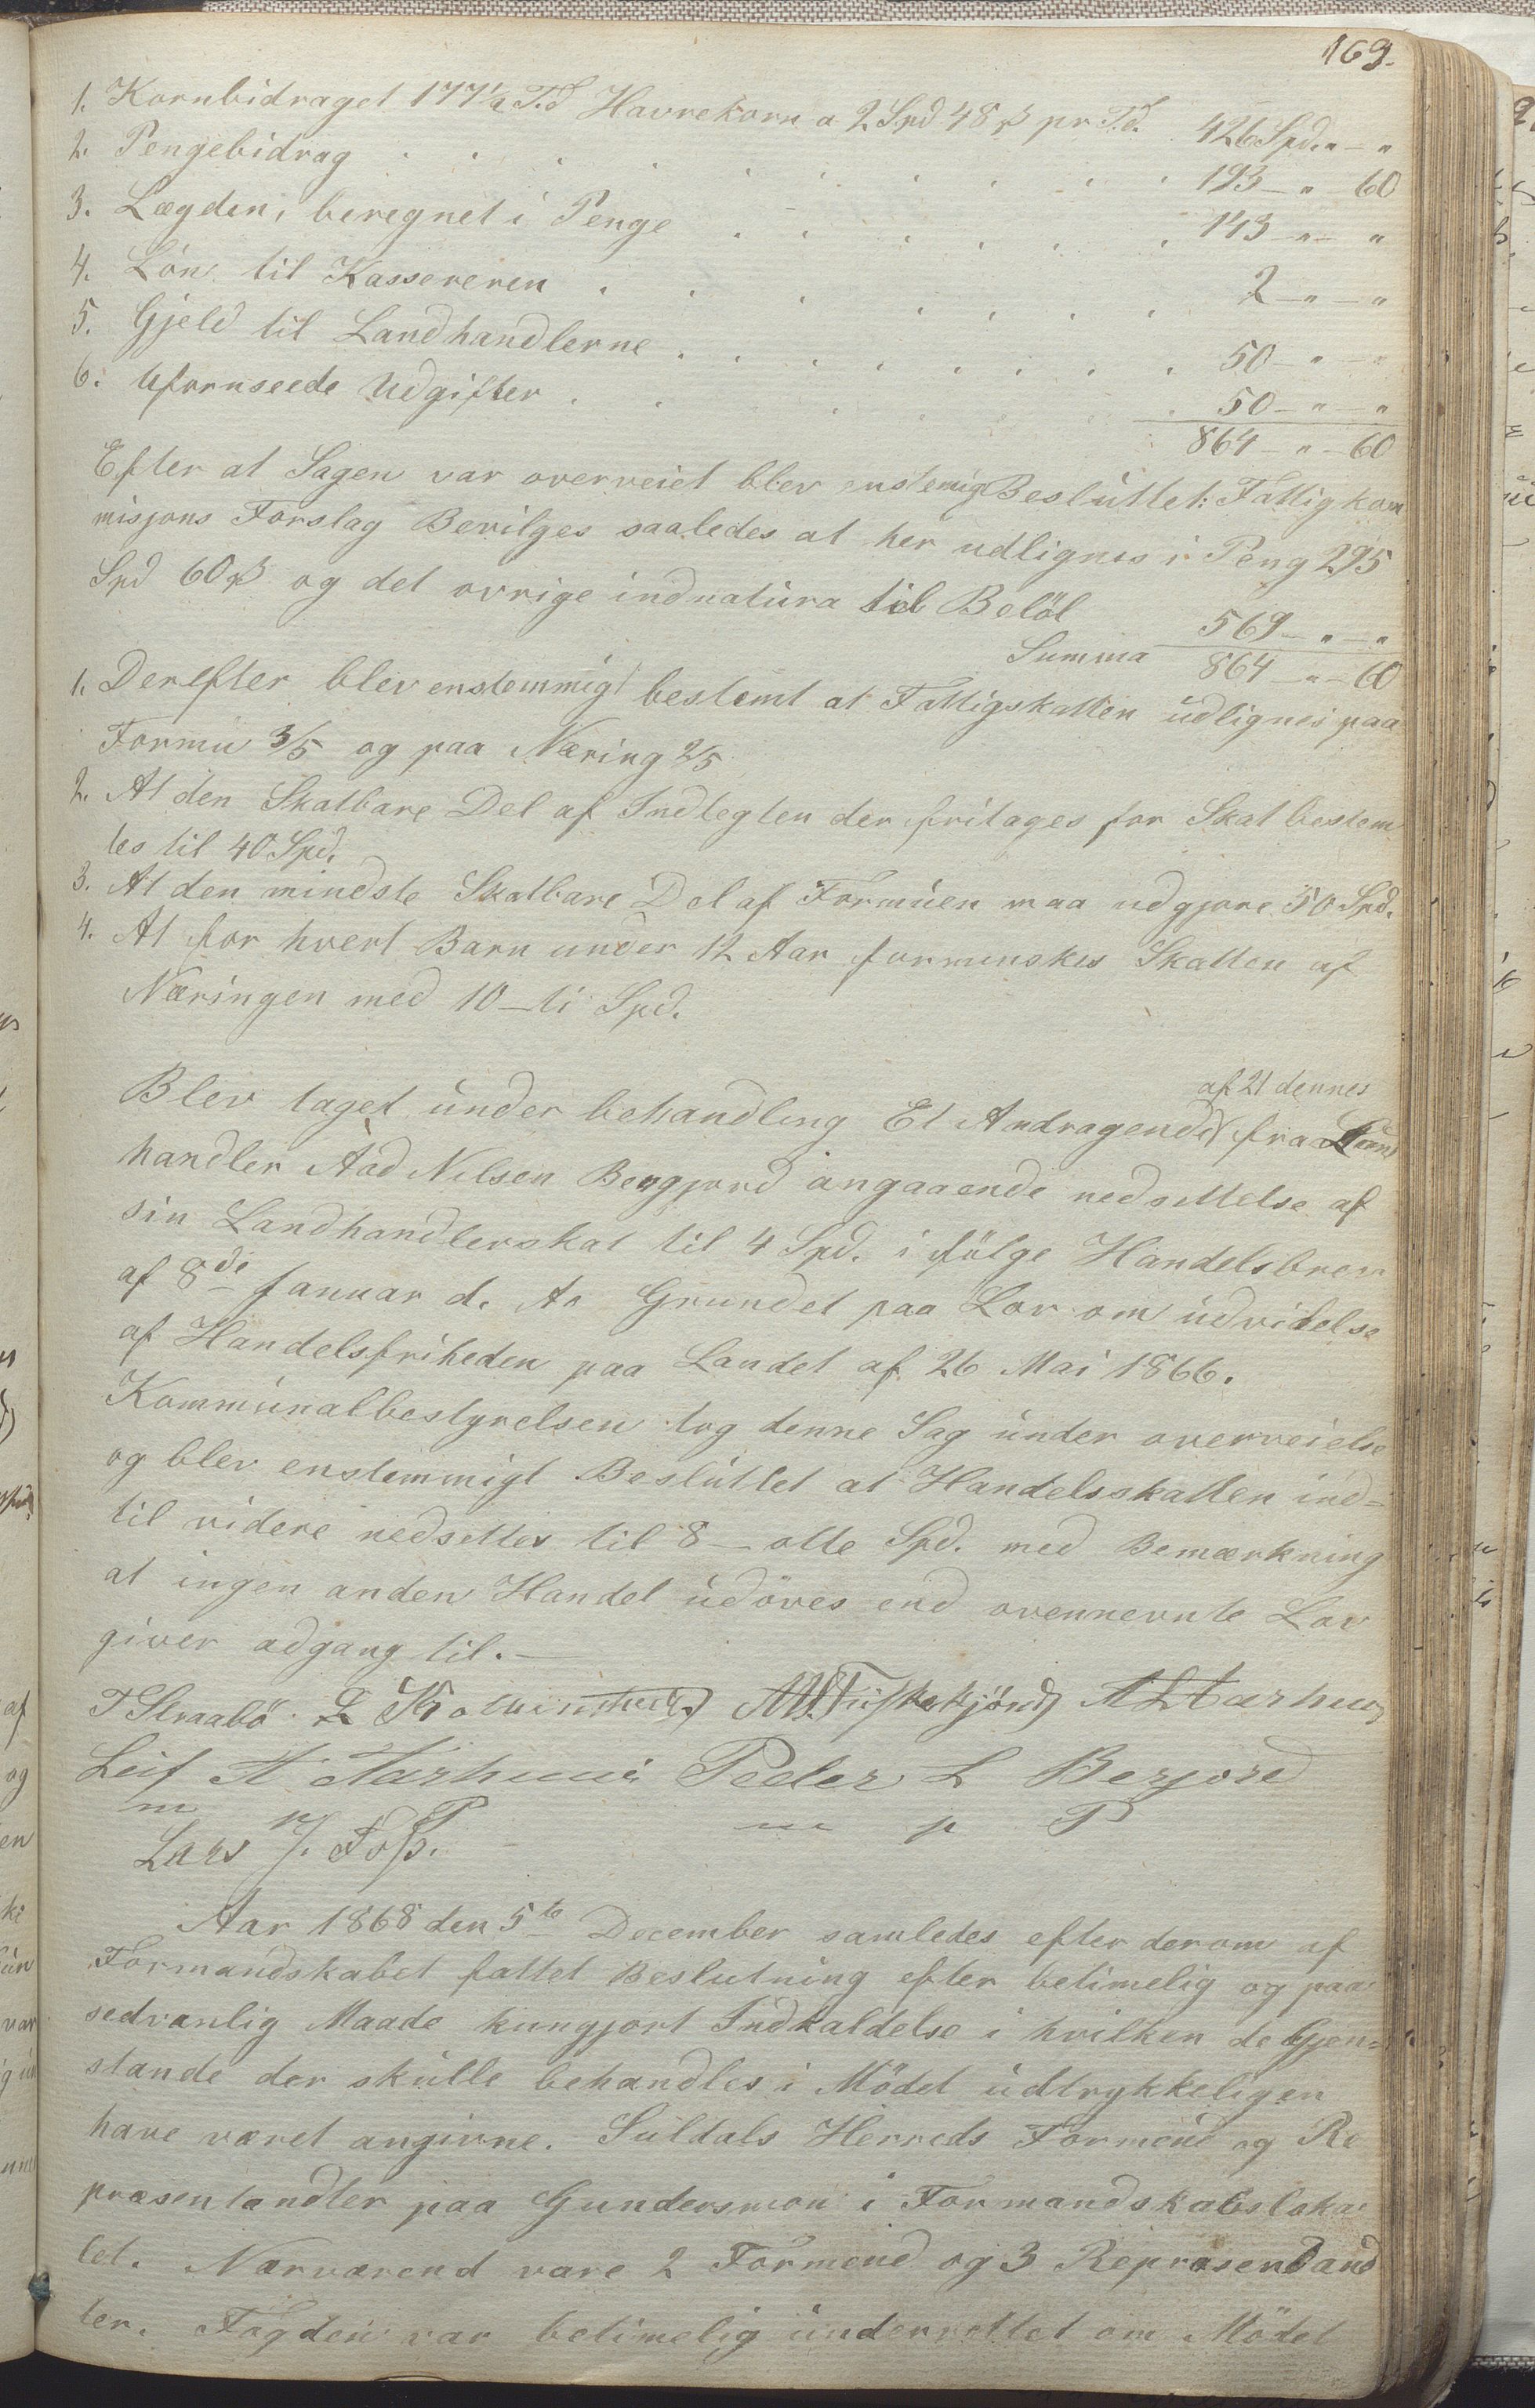 169.
1. Kornbidraget 177½ Td Havrekorn a 2 Spd 48 ß pr Td. 426 Spd. " — "
2. Pengebidrag . . . . . . . . . . 193 — " — 60
3. Lægden, beregnet i Penge . . . . . . . 143 — " — "
4. Lön til Kassereren . . . . . . . 2 — " — "
5. Gjeld til Landhandlerne . . . . . . . . 50 — " — "
6. Uforuseede Udgifter . . . . . 50 — " — "
864 — " — 60
Efter at Sagen var overveiet blev enstemig Besluttet: Fattigkom
misjons Forslag Bevilges saaledes at her udlignes i Peng 295
Spd 60 ß og det ovrige indnatura til Belöb
569 — " — "
Summa 864 — " — 60
1. Derefter blev enstemmigt bestemt at Fattigskatten udlignes paa
Formu 3/5 og paa Næring 2/5
2. At den Skatbare Del af Indtegten der fritages for Skat bestem
tes til 40 Spd.
3. At den mindste Skatbare Del af Formuen maa udgjore 50 Spd.
4. At for hvert Barn under 12 Aar formenskes Skatten af
Næringen med 10 — ti Spd.
af 21 dennes
Blev taget under behandling Et Andragende fra Land
handler Aad Nilsen Bergjord angaaende nedsettelse af
sin Landhandlerskat til 4 Spd. i fölge Handelsbrev
af 8de Januar d. Ar Grundet paa Lov om udvidelse
af Handelsfriheden paa Landet af 26 Mai 1866.
Kommunalbestyrelsen tog denne Sag under overveielse
og blev enstemmigt Besluttet at Handelsskatten ind=
til videre nedsettes til 8 — otte Spd. med Bemærkning
at ingen anden Handel udöves end ovennevnte Lov
giver adgang til. —
T Straabö L A L Aarhus
Leif A Aarhuus Peder L Bergjord
m p P m p P
Lars J. Foss.
Aar 1868 den 5te December samledes efter derom af
Formandskabet fattet Beslutning efter betimelig og paa
sedvanlig Maade kungjort Indkaldelse i hvilken de Gjen=
stande der skulle behandles i Mödet udtrykkeligen
have været angivne. Suldals Herreds Formend og Re
præsentandter paa Gundersmoen i Formandskabsloka
let. Nærværend vare 2 Formend og 3 Repræsendand
ter. Fogden var betimelig underrettet om Mödet